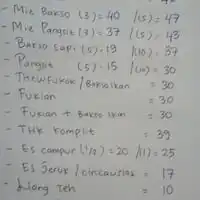 - Mie Bakso (3) = 40 / (5) = 47
- Mie Pangsit (3) = 37 / (5) = 43
- Bakso sapi (5) = 19 / (10) = 37
- Pangsit (5) = 15 / (10) = 30
- Thewfukok / Bakso Ikan = 30
- Fukian = 30
- Fukian + Bakso Ikan = 30
- THK Komplit = 39
- Es campur (1/2) = 20 / (1) = 25
- Es Jeruk / cincausias = 17
- Liang Teh = 10